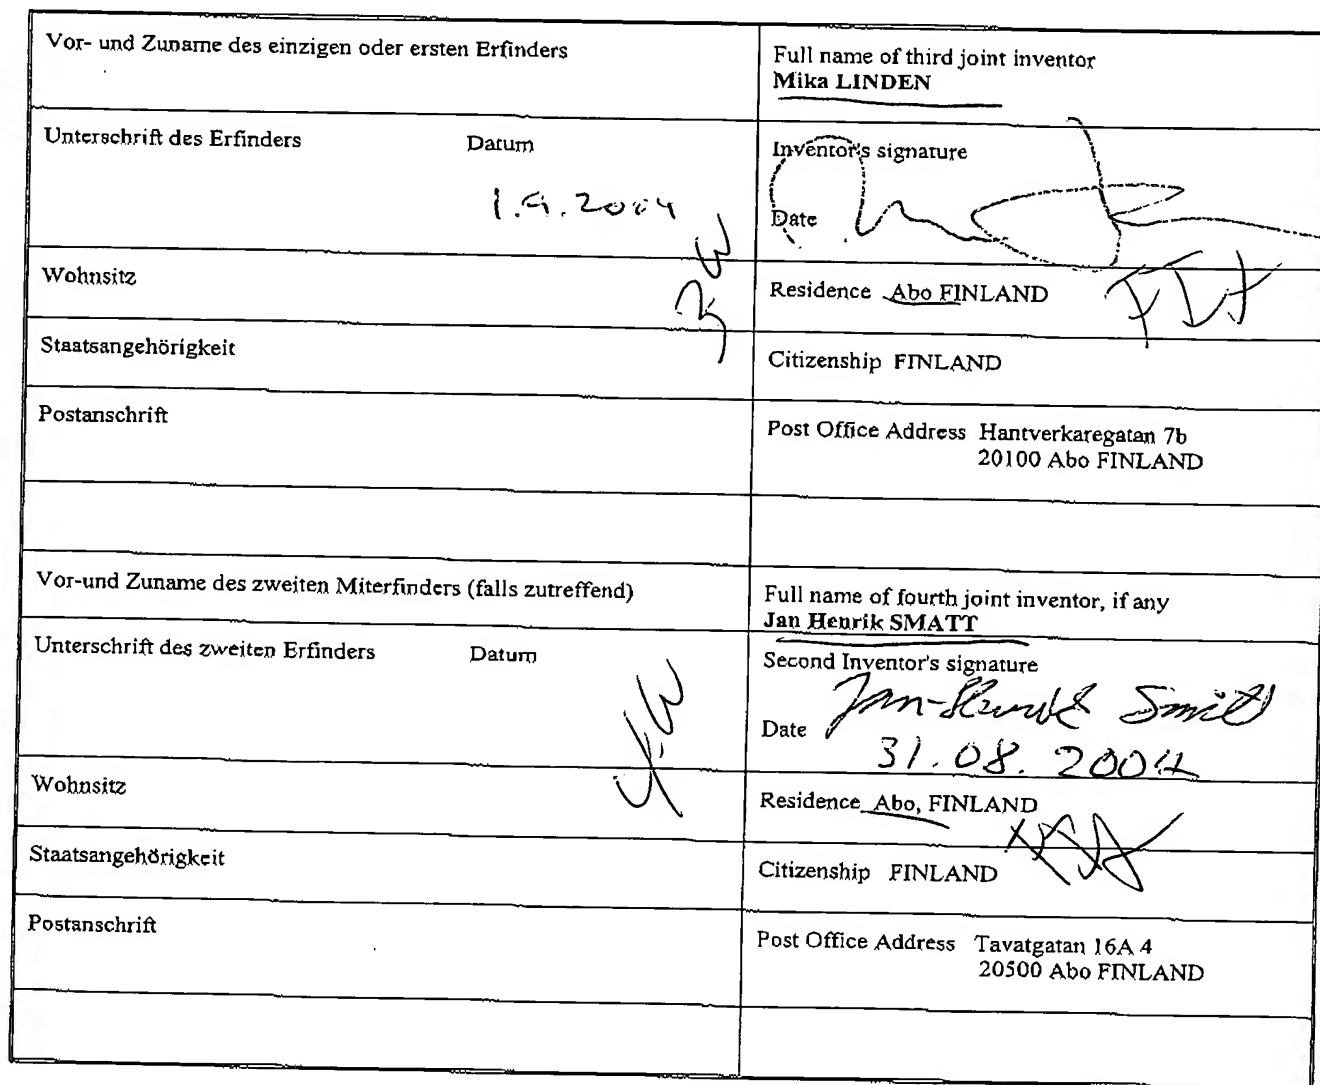 Vor- und Zuname des einzigen oder ersten Erfinders
Full name of third joint inventor
Mika LINDEN
Unterschrift des Erfinders Datum
1.9.2004
Inventor's signature
Date
Wohnsitz
Residence Abo FINLAND
Staatsangehörigkeit
Citizenship FINLAND
Postanschrift
Post Office Address Hantverkaregatan 7b
20100 Abo FINLAND
Vor-und Zuname des zweiten Miterfinders (falls zutreffend)
Full name of fourth joint inventor, if any
Jan Henrik SMATT
Unterschrift des zweiten Erfinders Datum
Second Inventor's signature
Date
31.08.2004
Wohnsitz
Residence Abo, FINLAND
Staatsangehörigkeit
Citizenship FINLAND
Postanschrift
Post Office Address Tavatgatan 16A 4
20500 Abo FINLAND